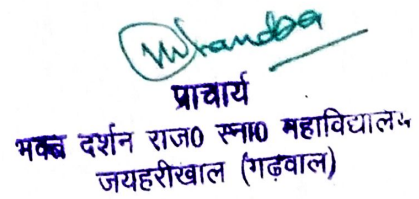 प्राचार्य
भक्त दर्शन राज0 स्ना0 महाविद्यालय
जयहरीखाल (गढ़वाल)